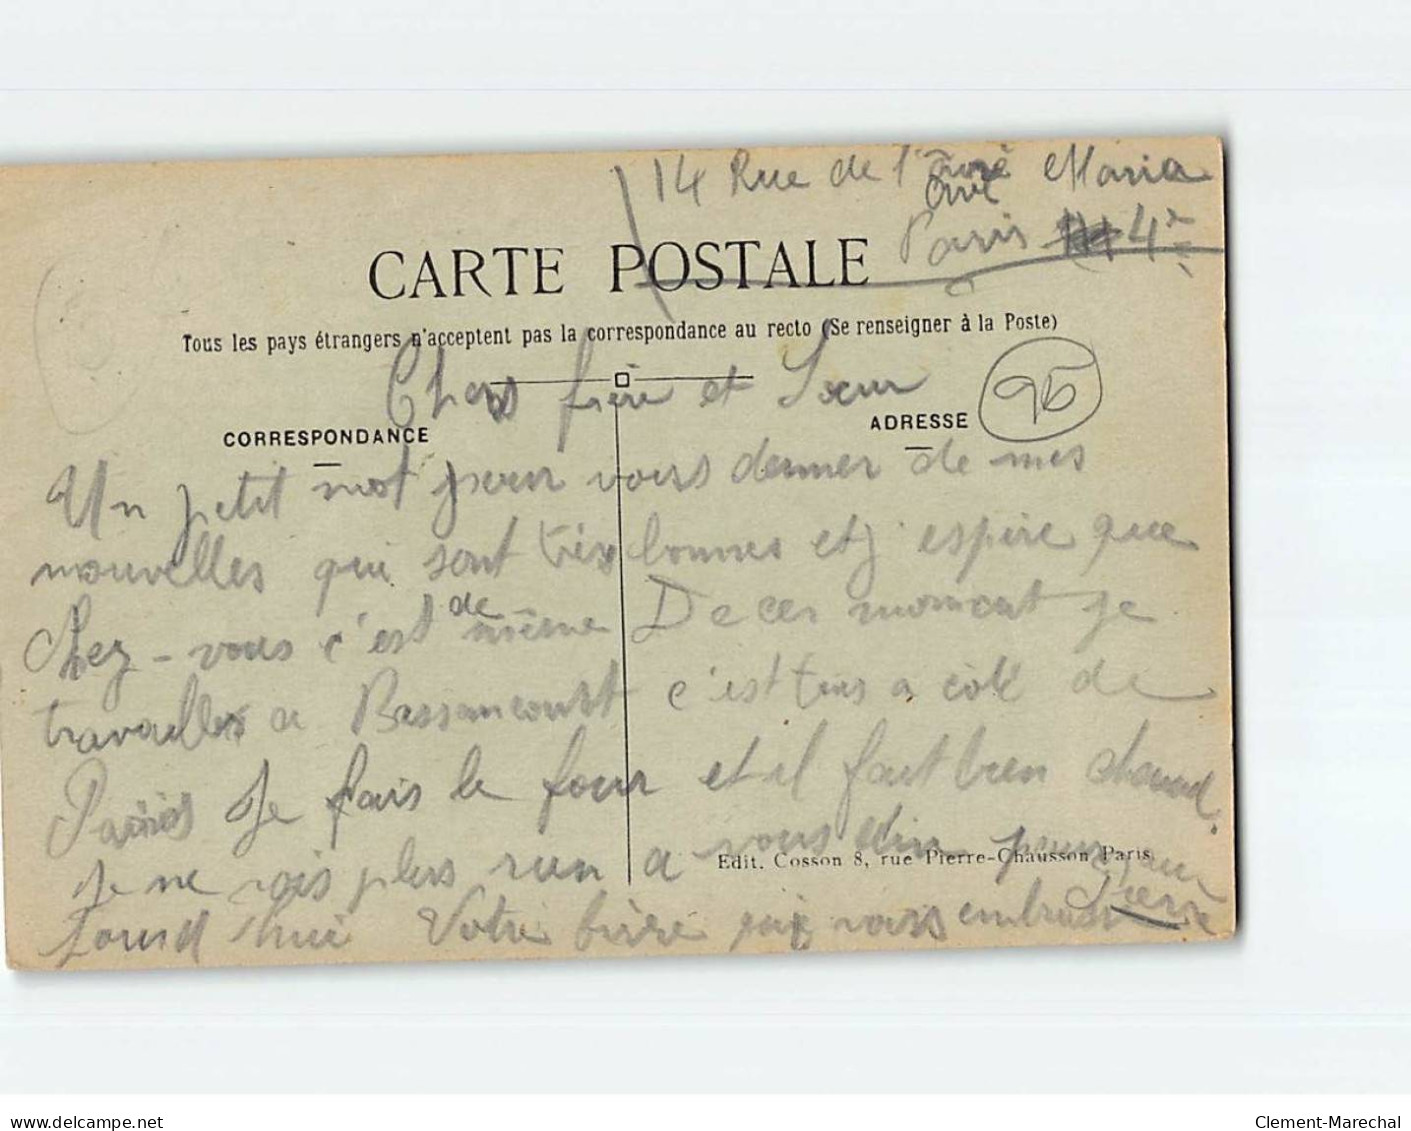 14 Rue de l'Avé Maria
Paris 4e
CARTE POSTALE
Tous les pays étrangers n'acceptent pas la correspondance au recto (Se renseigner à la Poste)
Chers frère et Sœur
95
CORRESPONDANCE
ADRESSE
Un petit mot pour vous donner de mes
nouvelles qui sont très bonnes et j espère que
Chez-vous c'est de même De ces moment je
travailler a Bessancourt c'est tous a coté de
Paris Je fais le four et il fait bien chaud.
Je ne vois plus rien a vous dire pour au
Jourd'hui Votre frère qui vous embrasse
Pierre
Edit. Cosson 8, rue Pierre-Chausson Paris
www.delcampe.net
Clement-Marechal